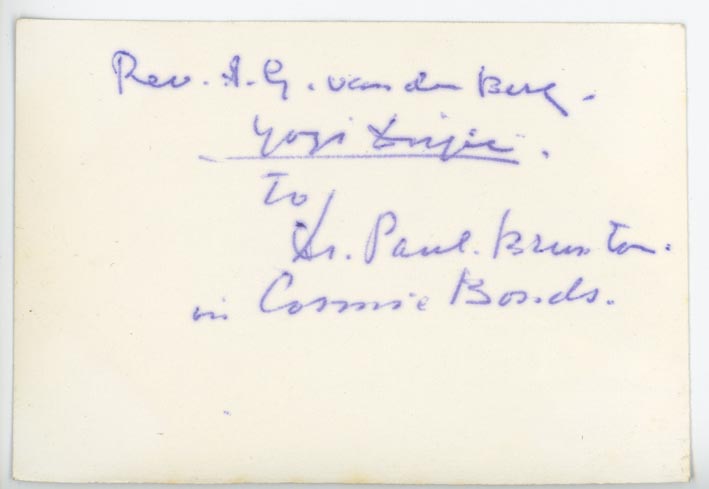 Rev. A. G. van den Berg.
Yogi
To
Dr. Paul. Brunton.
in Cosmic Bonds.